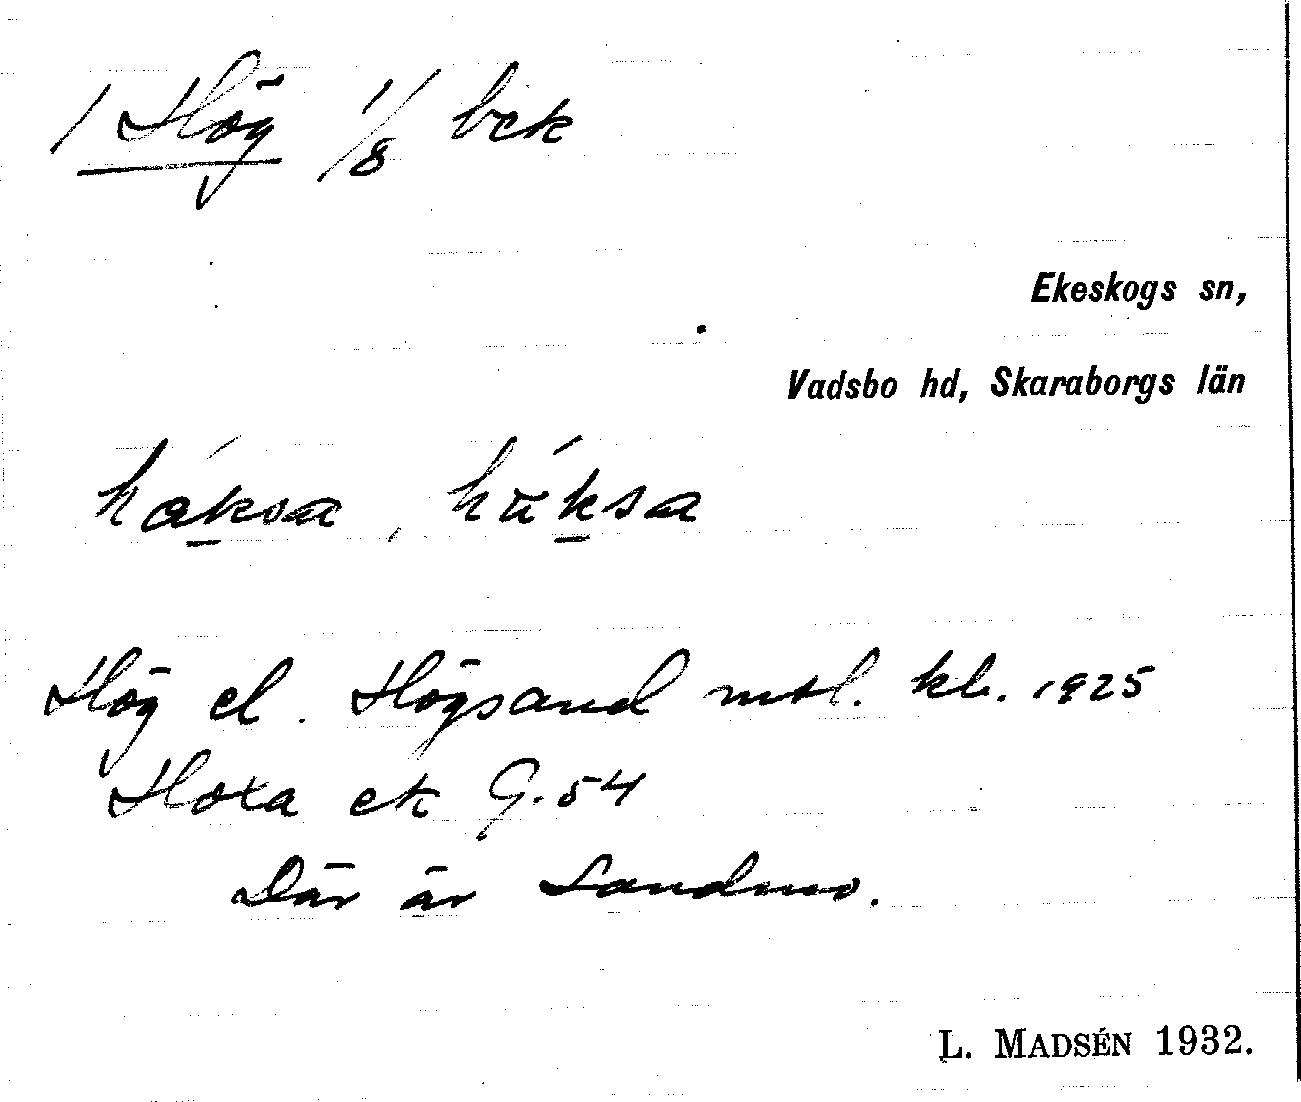 1 Hög 1/8 bek
Ekeskogs sn,
Vadsbo hd, Skaraborgs län
háksa, hű̄ksa
Hög el. Högsand mtl. kb. 1925
Hoxa ek G. 54
Där är Sandmo.
L. MADSÉN 1932.